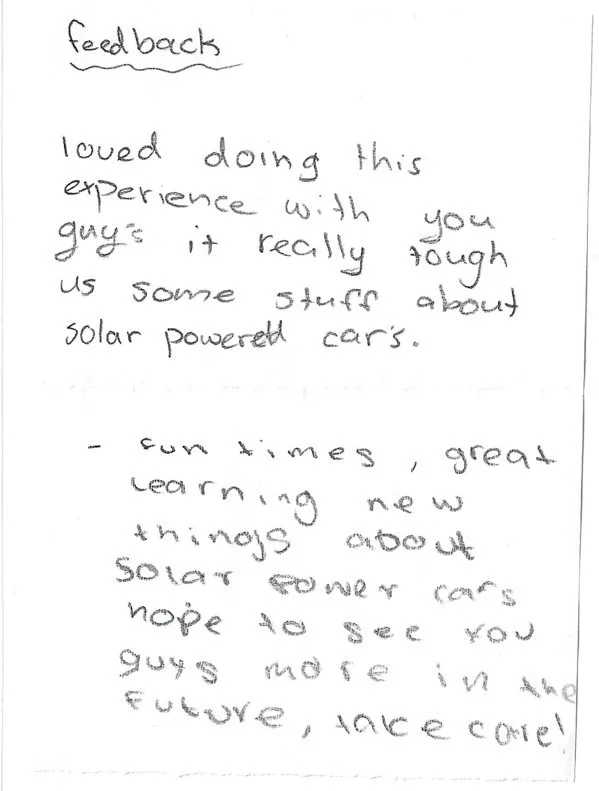 feedback
loved doing this
experience with you
guy's it really tough
us some stuff about
solar powered car's.
- fun times, great
learning new
things about
solar power cars
hope to see you
guys more in the
future, take care!